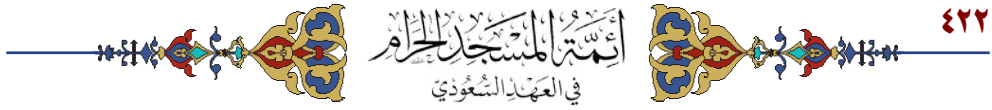 ٤٢٢
أَئِمَّةُ المَسْجِدِ الحَرَامِ
فِي العَهْدِ السُّعُودِيِّ